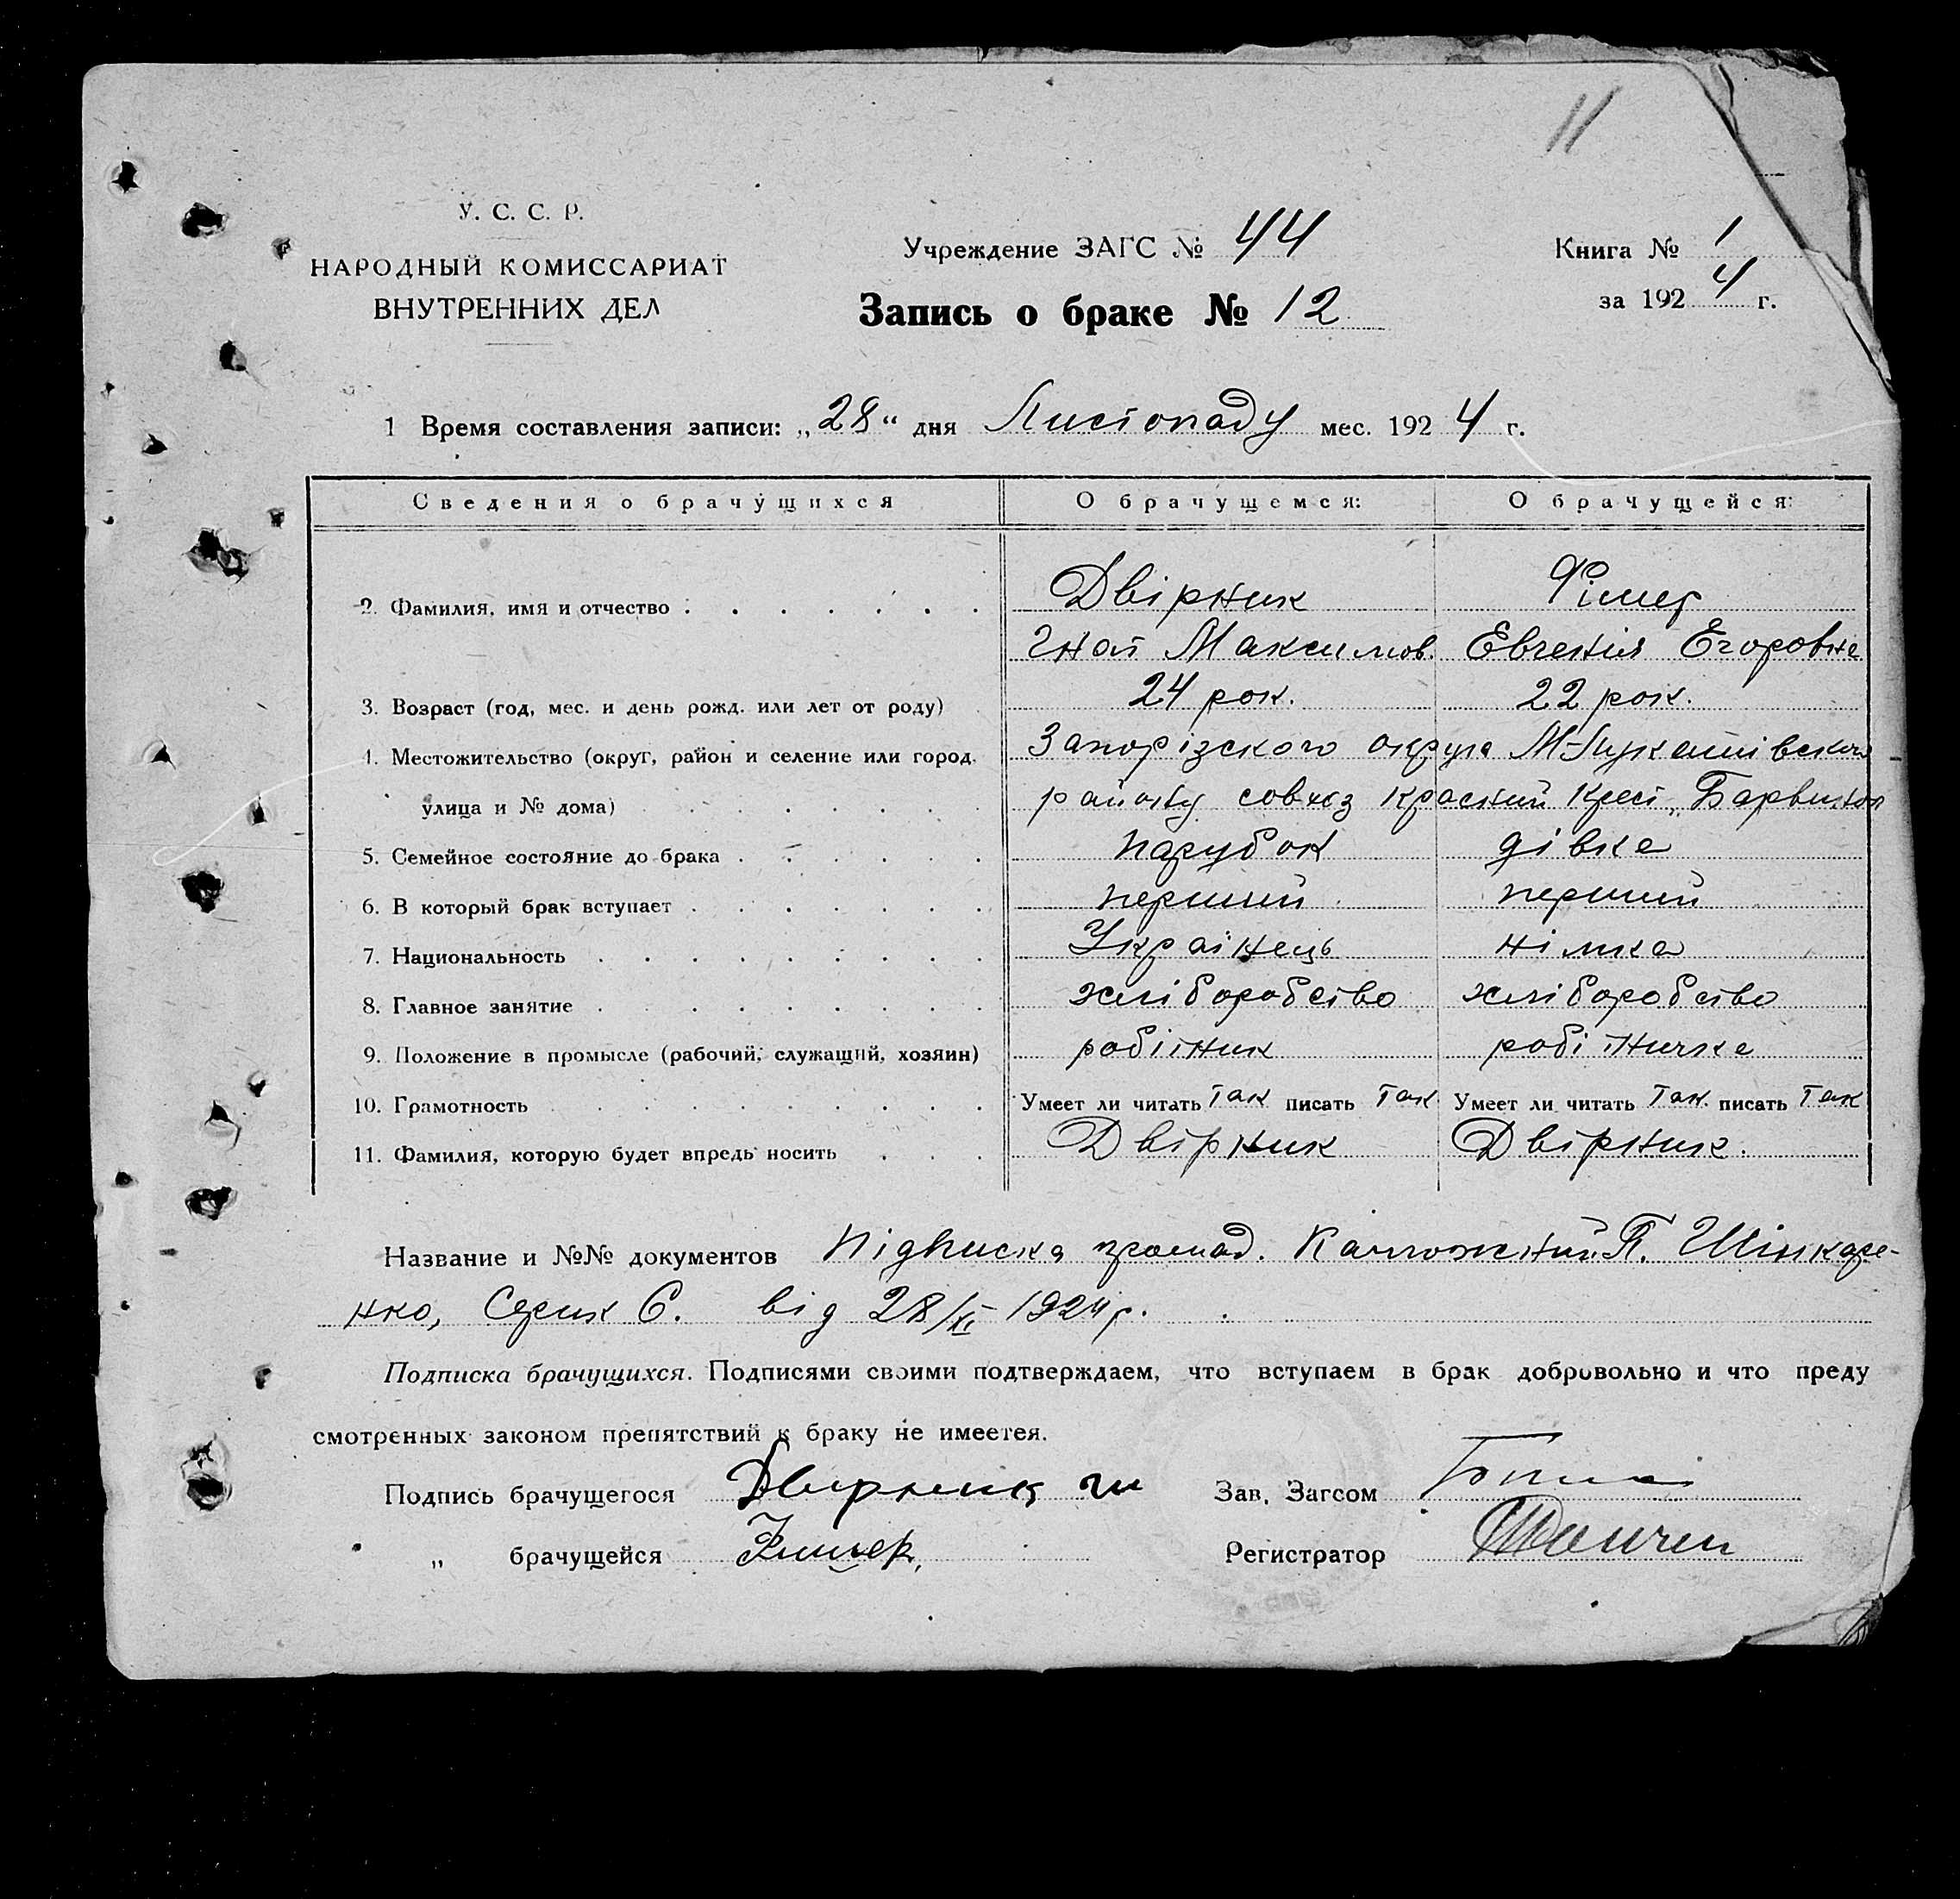 11
У. С. С. Р.
НАРОДНЫЙ КОМИССАРИАТ
ВНУТРЕННИХ ДЕЛ
Учреждение ЗАГС № 44
Запись о браке № 12
Книга № 1
за 1924 г.
1 Время составления записи: „28“ дня Листопаду мес. 1924 г.
Сведения о брачущихся О брачущемся: О брачущейся:
2. Фамилия, имя и отчество Двірник Фішер
Гнат Максимов. Евгенія Егоровна
3. Возраст (год, мес. и день рожд. или лет от роду) 24 рок. 22 рок.
4. Местожительство (округ, район и селение или город, Запорізского округа М-Лукашівского
улица и № дома) району совхоз красний Крест,
5. Семейное состояние до брака парубок дівка
6. В который брак вступает перший перший
7. Национальность Українець німка
8. Главное занятие хліборобство хліборобство
9. Положение в промысле (рабочий, служащий, хозяин) робітник робітничка
10. Грамотность Умеет ли читать так писать так Умеет ли читать так писать так
11. Фамилия, которую будет впредь носить Двірник Двірник.
Название и №№ документов Підписка громад. П. Шінкаре-
нко, від 28/XI 1924 р.
Подписка брачущихся. Подписями своими подтверждаем, что вступаем в брак добровольно и что преду
смотренных законом препятствий к браку не имеется.
Подпись брачущегося Двирник Гн Зав. Загсом
„ брачущейся Регистратор